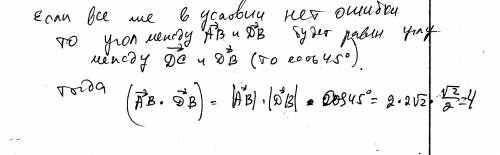 Если все же в условии нет ошибки
то угол между A⃗B и D⃗B будет равен углу
между D⃗C и D⃗B (то есть 45°).
тогда
(A⃗B · D⃗B) = |A⃗B| · |D⃗B| · cos45° = 2 · 2√2 · √2/2 = 4